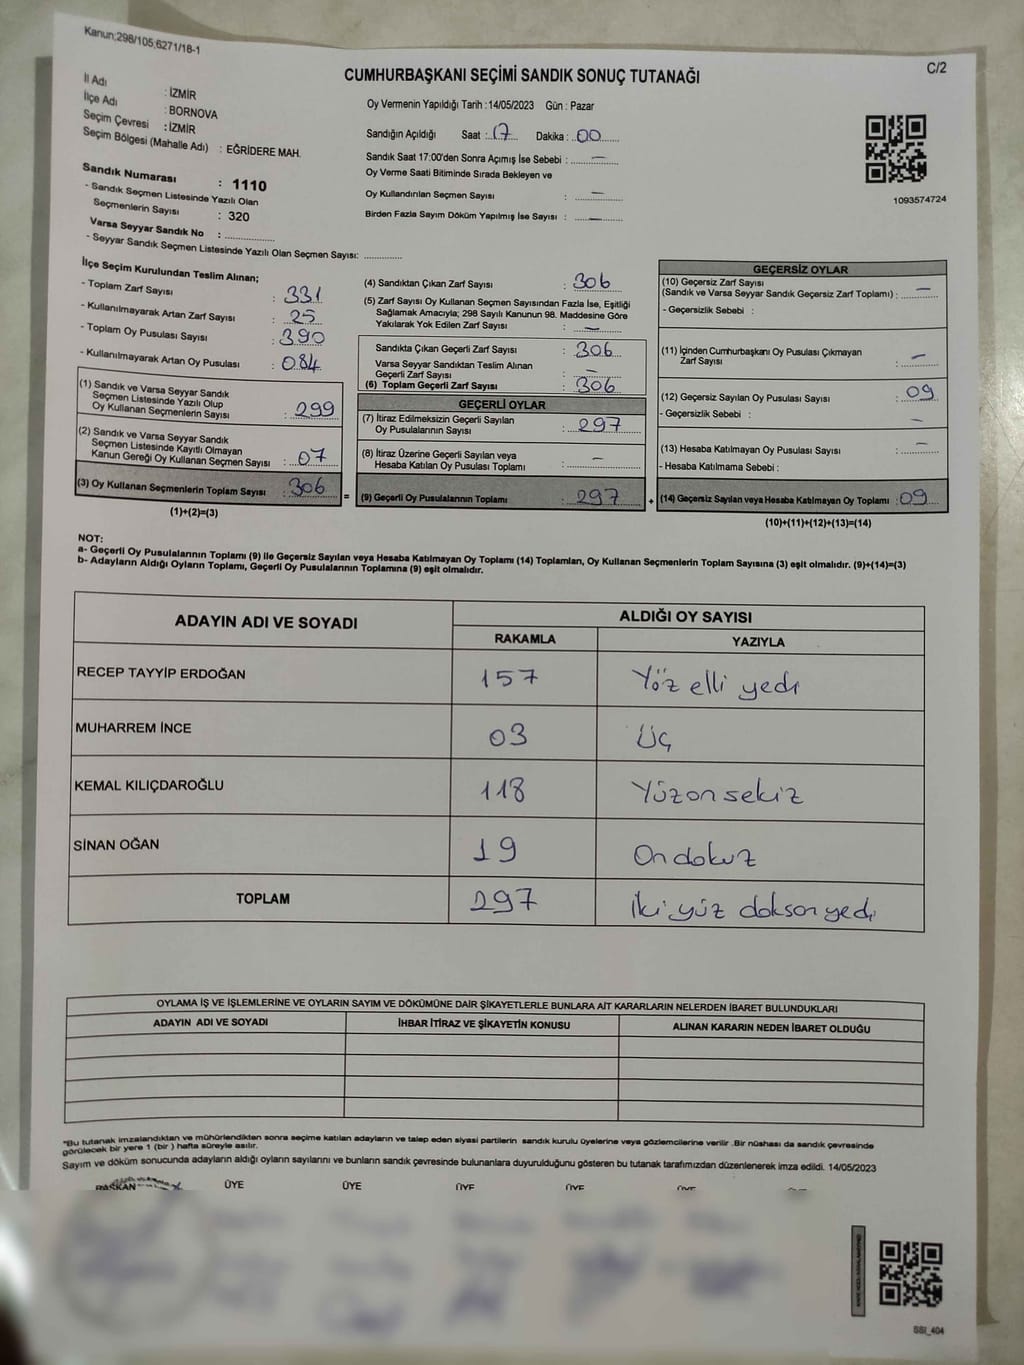 Kanun;298/105;6271/18-1
C/2
CUMHURBAŞKANI SEÇİMİ SANDIK SONUÇ TUTANAĞI
İl Adı : İZMİR
İlçe Adı : BORNOVA
Seçim Çevresi : İZMİR
Seçim Bölgesi (Mahalle Adı) : EĞRİDERE MAH.
Sandık Numarası : 1110
- Sandık Seçmen Listesinde Yazılı Olan
Seçmenlerin Sayısı : 320
Varsa Seyyar Sandık No : ..............
- Seyyar Sandık Seçmen Listesinde Yazılı Olan Seçmen Sayısı: ............
Oy Vermenin Yapıldığı Tarih : 14/05/2023 Gün : Pazar
Sandığın Açıldığı Saat : 17 Dakika : 00
Sandık Saat 17:00'den Sonra Açımış İse Sebebi : —
Oy Verme Saati Bitiminde Sırada Bekleyen ve
Oy Kullandırılan Seçmen Sayısı : —
Birden Fazla Sayım Döküm Yapılmış İse Sayısı : —
1093574724
İlçe Seçim Kurulundan Teslim Alınan;
- Toplam Zarf Sayısı : 331
- Kullanılmayarak Artan Zarf Sayısı : 25
- Toplam Oy Pusulası Sayısı : 390
- Kullanılmayarak Artan Oy Pusulası : 084
(1) Sandık ve Varsa Seyyar Sandık
Seçmen Listesinde Yazılı Olup
Oy Kullanan Seçmenlerin Sayısı : 299
(2) Sandık ve Varsa Seyyar Sandık
Seçmen Listesinde Kayıtlı Olmayan
Kanun Gereği Oy Kullanan Seçmen Sayısı : 07
(3) Oy Kullanan Seçmenlerin Toplam Sayısı : 306
(1)+(2)=(3)
=
(4) Sandıktan Çıkan Zarf Sayısı : 306
(5) Zarf Sayısı Oy Kullanan Seçmen Sayısından Fazla İse, Eşitliği
Sağlamak Amacıyla; 298 Sayılı Kanunun 98. Maddesine Göre
Yakılarak Yok Edilen Zarf Sayısı : —
Sandıkta Çıkan Geçerli Zarf Sayısı : 306
Varsa Seyyar Sandıktan Teslim Alınan
Geçerli Zarf Sayısı : —
(6) Toplam Geçerli Zarf Sayısı : 306
GEÇERLİ OYLAR
(7) İtiraz Edilmeksizin Geçerli Sayılan
Oy Pusulalarının Sayısı : 297
(8) İtiraz Üzerine Geçerli Sayılan veya
Hesaba Katılan Oy Pusulası Toplamı : —
(9) Geçerli Oy Pusulalarının Toplamı : 297
+
GEÇERSİZ OYLAR
(10) Geçersiz Zarf Sayısı
(Sandık ve Varsa Seyyar Sandık Geçersiz Zarf Toplamı) : —
- Geçersizlik Sebebi :
(11) İçinden Cumhurbaşkanı Oy Pusulası Çıkmayan
Zarf Sayısı : —
(12) Geçersiz Sayılan Oy Pusulası Sayısı : 09
- Geçersizlik Sebebi : —
(13) Hesaba Katılmayan Oy Pusulası Sayısı : —
- Hesaba Katılmama Sebebi :
(14) Geçersiz Sayılan veya Hesaba Katılmayan Oy Toplamı : 09
(10)+(11)+(12)+(13)=(14)
NOT:
a- Geçerli Oy Pusulalarının Toplamı (9) ile Geçersiz Sayılan veya Hesaba Katılmayan Oy Toplamı (14) Toplamları, Oy Kullanan Seçmenlerin Toplam Sayısına (3) eşit olmalıdır. (9)+(14)=(3)
b- Adayların Aldığı Oyların Toplamı, Geçerli Oy Pusulalarının Toplamına (9) eşit olmalıdır.
ADAYIN ADI VE SOYADI ALDIĞI OY SAYISI
RAKAMLA YAZIYLA
RECEP TAYYİP ERDOĞAN 157 Yüz elli yedi
MUHARREM İNCE 03 Üç
KEMAL KILIÇDAROĞLU 118 Yüzon sekiz
SİNAN OĞAN 19 On dokuz
TOPLAM 297 İki yüz doksan yedi
OYLAMA İŞ VE İŞLEMLERİNE VE OYLARIN SAYIM VE DÖKÜMÜNE DAİR ŞİKAYETLERLE BUNLARA AİT KARARLARIN NELERDEN İBARET BULUNDUKLARI
ADAYIN ADI VE SOYADI İHBAR İTİRAZ VE ŞİKAYETİN KONUSU ALINAN KARARIN NEDEN İBARET OLDUĞU
"Bu tutanak imzalandıktan ve mühürlendikten sonra seçime katılan adayların ve talep eden siyasi partilerin sandık kurulu üyelerine veya gözlemcilerine verilir .Bir nüshası da sandık çevresinde
görülecek bir yere 1 (bir ) hafta süreyle asılır.
Sayım ve döküm sonucunda adayların aldığı oyların sayılarını ve bunların sandık çevresinde bulunanlara duyurulduğunu gösteren bu tutanak tarafımızdan düzenlenerek imza edildi. 14/05/2023
BAŞKAN ÜYE ÜYE ÜYE ÜYE ÜYE
SSI_404